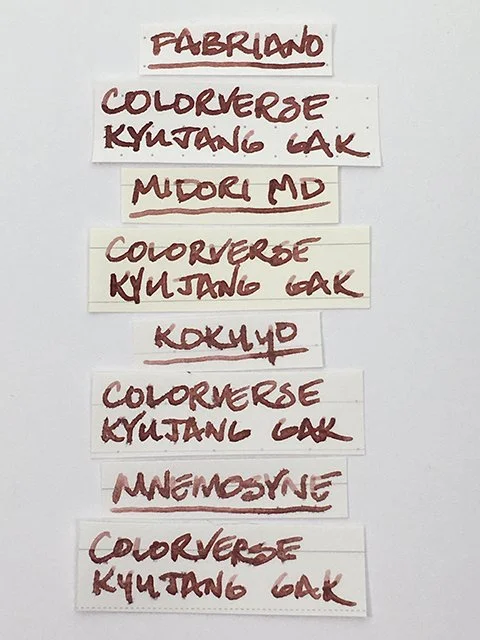 FABRIANO
COLORVERSE
KYUJANG GAK
MIDORI MD
COLORVERSE
KYUJANG GAK
KOKUYO
COLORVERSE
KYUJANG GAK
MNEMOSYNE
COLORVERSE
KYUJANG GAK